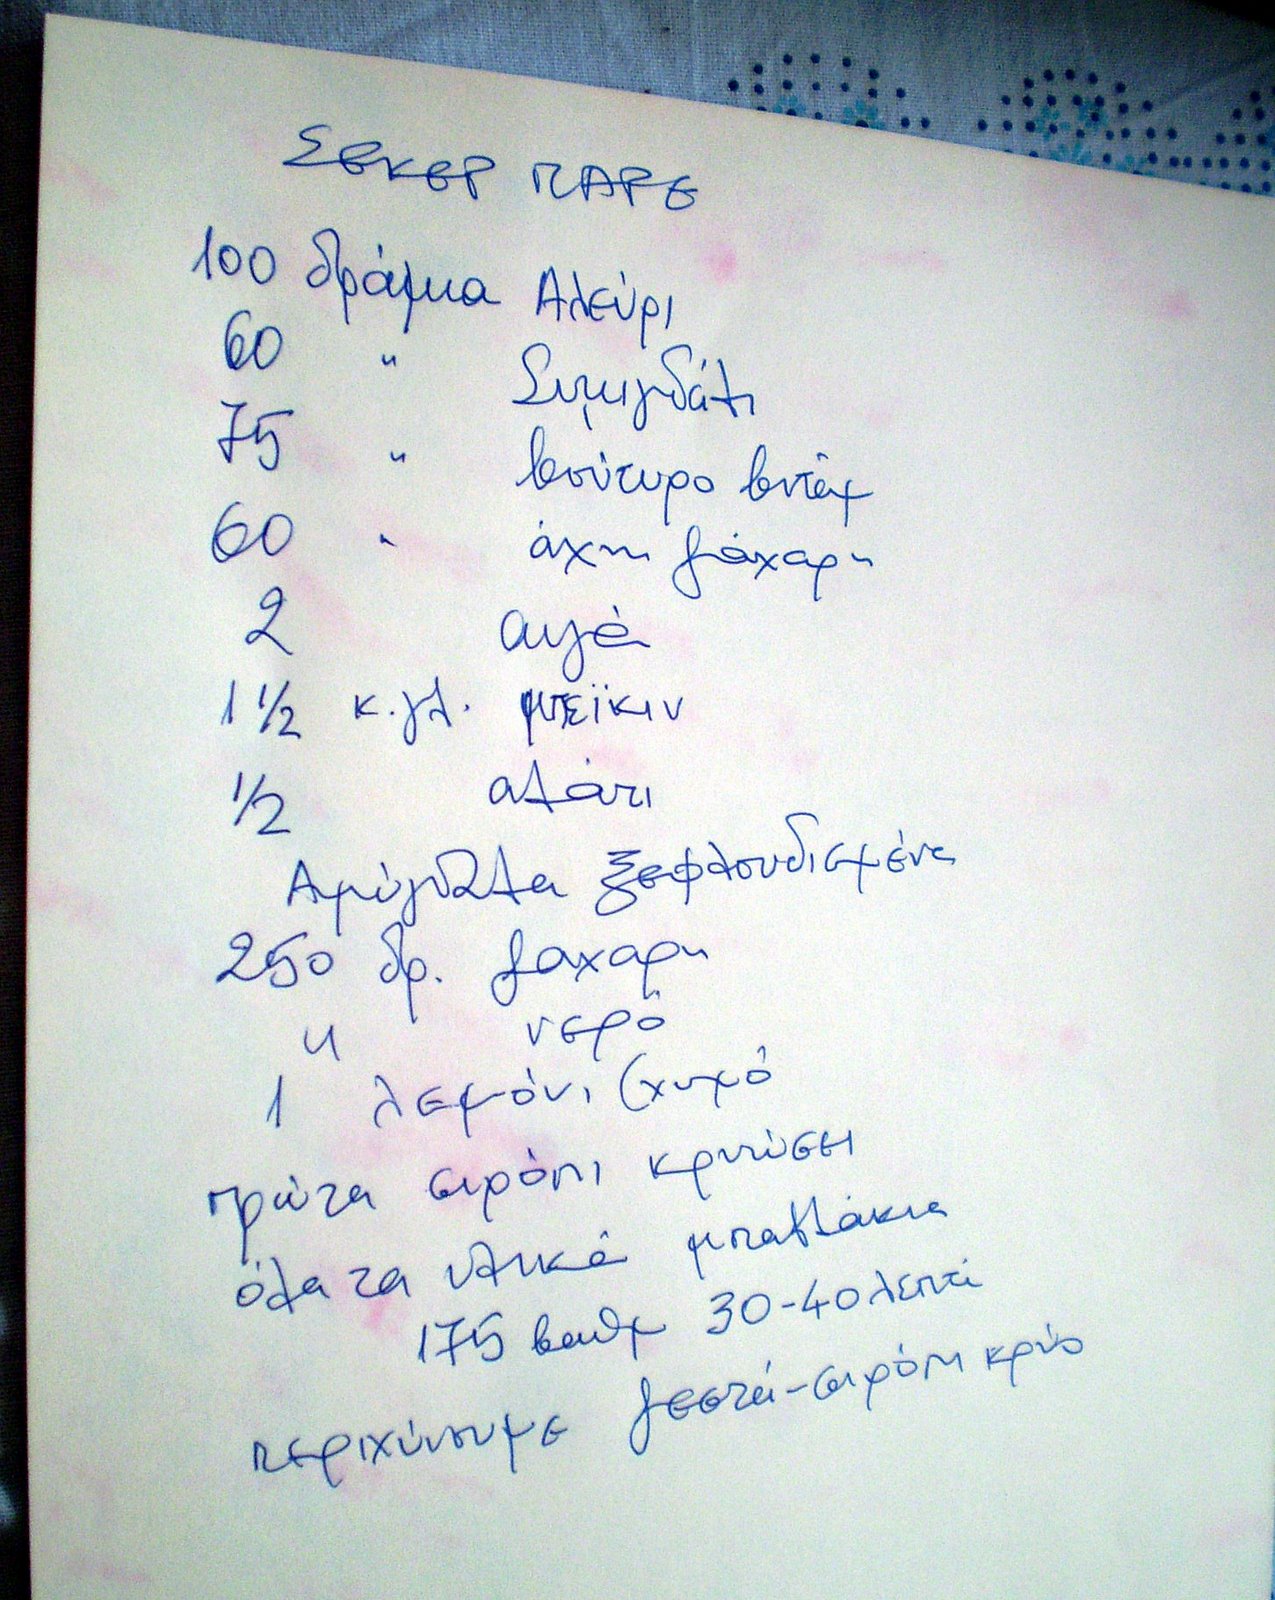 ΣΕΚΕΡ ΠΑΡΕ
100 δράμια Αλεύρι
60 " Σιμιγδάλι
75 " Βούτυρο Βιτάμ
60 " άχνη ζάχαρη
2 αυγά
1 1/2 κ.γλ. μπέϊκιν
1/2 αλάτι
Αμύγδαλα ξεφλουδισμένα
250 δρ. ζαχαρη
" νερό
1 λεμόνι (χυμό
πρώτα σιρόπι κρυώσει
όλα τα υλικά μπαλάκια
175 βαθμ 30-40 λεπτά
περιχύνουμε ζεστά-σιρόπι κρύο